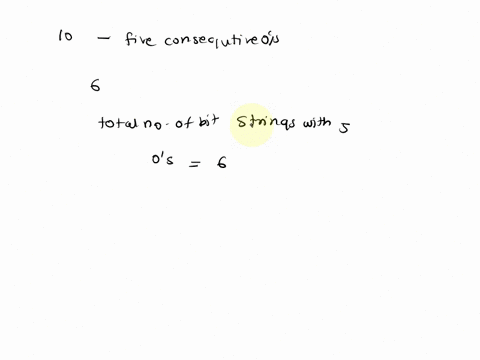 10 – five consequtive 0's
6
total no. of bit strings with 5
0's = 6